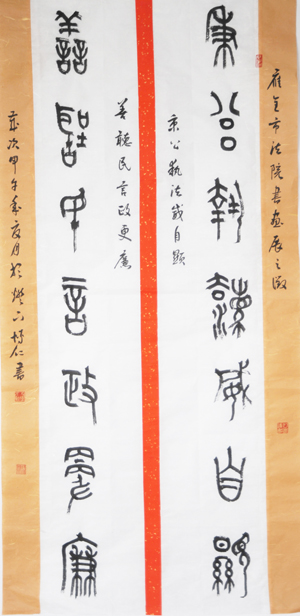 應全市法院書畫展之徵
秉公執法威自顯
秉公執法威自顯
善聽民言政更廉
善聽民言政更廉
歲次甲午年夏月於燈下仁書